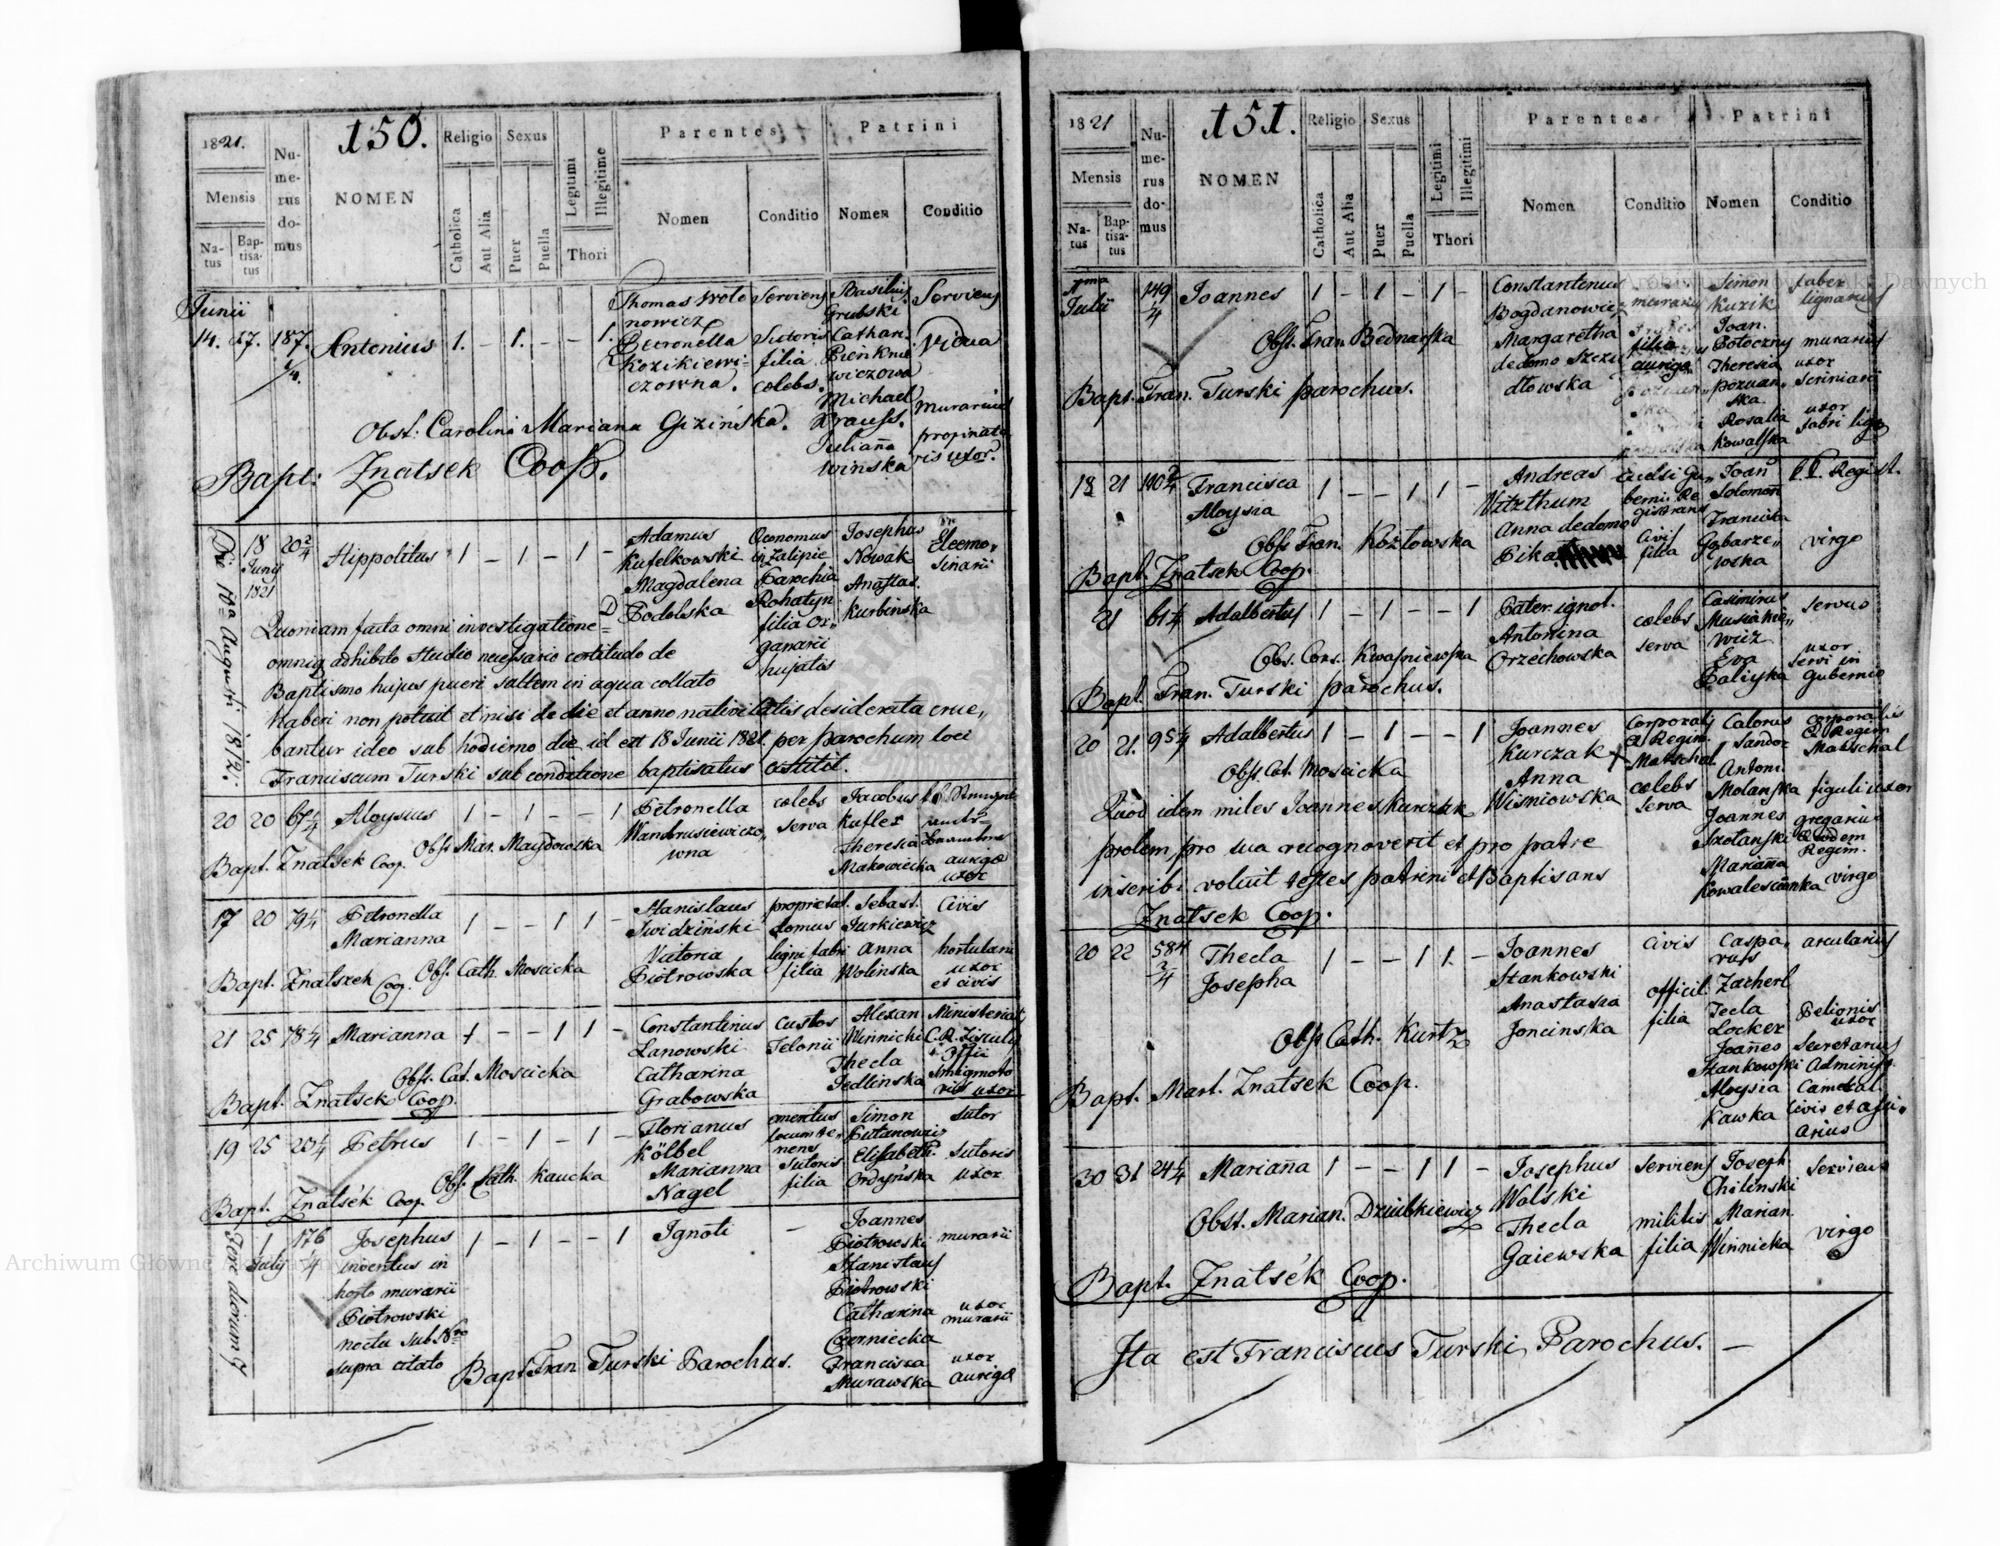 1821.
150.
Nu-
me-
rus
do-
mus
NOMEN
Religio
Sexus
Legitimi
Illegitime
Thori
Parentes
Patrini
Mensis
Na-
tus
Bap-
tisa-
tus
Catholica
Aut Alia
Puer
Puella
Nomen
Conditio
Nomen
Conditio
Junii
14. 17. 187. Antonius 1. – 1. – – 1.
Thomas Wolo
nowicz
Petronella
Kozikiewi-
czowna.
Serviens
Sutoris
filia
cœlebs.
Basilius
Grubski
Cathar.
Pienknie
wiczowa
Michael
Krauss.
Julianna
Winska
Serviens
Vidua
murarius
propinato
ris uxor.
Obst: Carolina Mariana Gizińska.
Bapt: Znatsek Coop.
Die 18va Augusti 1812.
18
Juny
1821
20 2/4 Hippolitus 1 – 1 – 1 –
Adamus
Kufelkowski
Magdalena
Podolska
Œconomus
in Zalipie
Parochia
Rohatyn
filia or,,
ganarii
hujatis
Josephus
Nowak
Anastas.
Kurbinska
Eleemo,,
sinarii
Quoniam facta omni investigatione
omniq adhibito studio necessario certitudo de
Baptismo hujus pueri saltem in aqua collato
haberi non potuit et nisi de die et anno nativitatis desiderata erue,,
bantur ideo sub hodierno die id est 18 Junii 1821 per parochum loci
Franciscum Turski sub conditione baptisatus extitit.
20 20 67 4/4 Aloysius 1 – 1 – – 1
Petronella
Wandrusiewiczo,,
wna
cœlebs
serva
Jacobus
Kufler
Theresia
Makowiecka
aurigæ
uxor
Obst Mar. Maydowska
Bapt. Znatsek Coop.
17 20 79 4/4 Petronella
Marianna 1 – – 1 1 –
Stanislaus
Swidziński
Victoria
Piotrowska
proprietat.
domus
ligni fabri
filia
Sebast.
Jurkiewicz
Anna
Wolinska
Civis
hortulani
uxor
et civis
Obst Cath. Moscicka
Bapt. Znatsek Coop.
21 25 78 4/4 Marianna 1 – – 1 1 –
Constantinus
Lanowski
Catharina
Grabowska
Custos
Telonii
Alexan
Winnicki
Thecla
Jedlinska
Obst. Cat. Moscicka
Bapt. Znatsek Coop.
19 25 20/4 Petrus 1 – 1 – 1 –
Florianus
Kölbel
Marianna
Nagel
emeritus
locum te,,
nens
sutoris
filia
Simon
Butanowicz
Elisabeth.
Ordyńska
sutor
sutoris
uxor
Obst. Cath. Kaucka
Bapt. Znatsék Coop.
1
July
176
4/4 Josephus 1 – 1 – – 1 Ignoti –
inventus in
horto murarii
Piotrowski
noctu sub Nro
supra citato
Joannes
Piotrowski
Stanislaus
Piotrowski
Catharina
Czerniecka
Francisca
Murawska
murarii
uxor
murarii
uxor
aurigæ
Bapt Fran Turski Parochus.
1821
151.
Nu-
me-
rus
do-
mus
NOMEN
Religio
Sexus
Legitimi
Illegitimi
Thori
Parentes
Patrini
Mensis
Na-
tus
Bap-
tisa-
tus
Catholica
Aut Alia
Puer
Puella
Nomen
Conditio
Nomen
Conditio
Julii
149
4 Joannes 1 – 1 – 1 –
Constantinus
Bogdanowicz
Margaretha
de domo Szczu
dłowska
murarius
filia
aurigæ
Simon
Kuzik
Joan.
Potoczny
Theresia
poznan,,
ska
Rosalia
Kowalska
faber
lignarius
murarius
uxor
scriniarii
uxor
fabri lig.
Obst. Fran. Bednarska
Bapt. Fran. Turski parochus.
18 21 110 2/4 Francisca
Aloysia 1 – – 1 1 –
Andreas
Vitzthum
Anna de domo
Pika
civis
filia
Joann
Solomon
Francisca
Gabarze,,
wska
Regist.
virgo
Obst Fran. Kozłowska
Bapt. Znatsek Coop.
21 61 4/4 Adalbertus 1 – 1 – – 1
Pater. ignot.
Antonina
Orzechowska
cœlebs
serva
Casimirus
Musiakie,,
wicz
Eva
Paliyka
servus
uxor
servi in
gubernio
Obs. Cons. Kwasniewska
Bapt. Fran. Turski parochus.
20 21. 95 4/4 Adalbertus 1 – 1 – – 1
Joannes
Kurczak
Anna
Wisniowska
Corporalis
C. Regim.
Matschal
cœlebs
serva
Sandor
Antoni.
Molanska
Joannes
Szolanski
Marianna
Kowalesčianka
corporalis
C. Regim
Matschal
figuli uxor
gregarius
Regim.
virgo
Obst. Cat. Moscicka
Quod idem miles Joannes Kurczak
prolem pro sua recognoverit et pro patre
inscribi voluit testes patrini et Baptisans
Znatsek Coop.
20 22 584
2/4 Thecla
Josepha 1 – – 1 1. –
Joannes
Stankowski
Anastasia
Joncinska
civis
officil.
filia
Caspa,,
rus
Zacherl
Tecla
Locker
Joannes
Stankowski
Aloysia
Kawka
arcularius
Pelionis
uxor
Secretarius
Administ.
Cameral.
Civis et
arius
Obst Cath. Kurtz
Bapt. Mart. Znatsek Coop.
30 31 24 4/4 Marianna 1 – – 1 1 –
Josephus
Wolski
Thecla
Gaiewska
serviens
militis
filia
Joseph
Chilinski
Marian
Winnicka
serviens
virgo
Obst. Marian. Dziubkiewicz
Bapt. Znatsék Coop.
Ita est Franciscus Turski Parochus. –
Archiwum Główne Akt Dawnych
Archiwum Główne Akt Dawnych